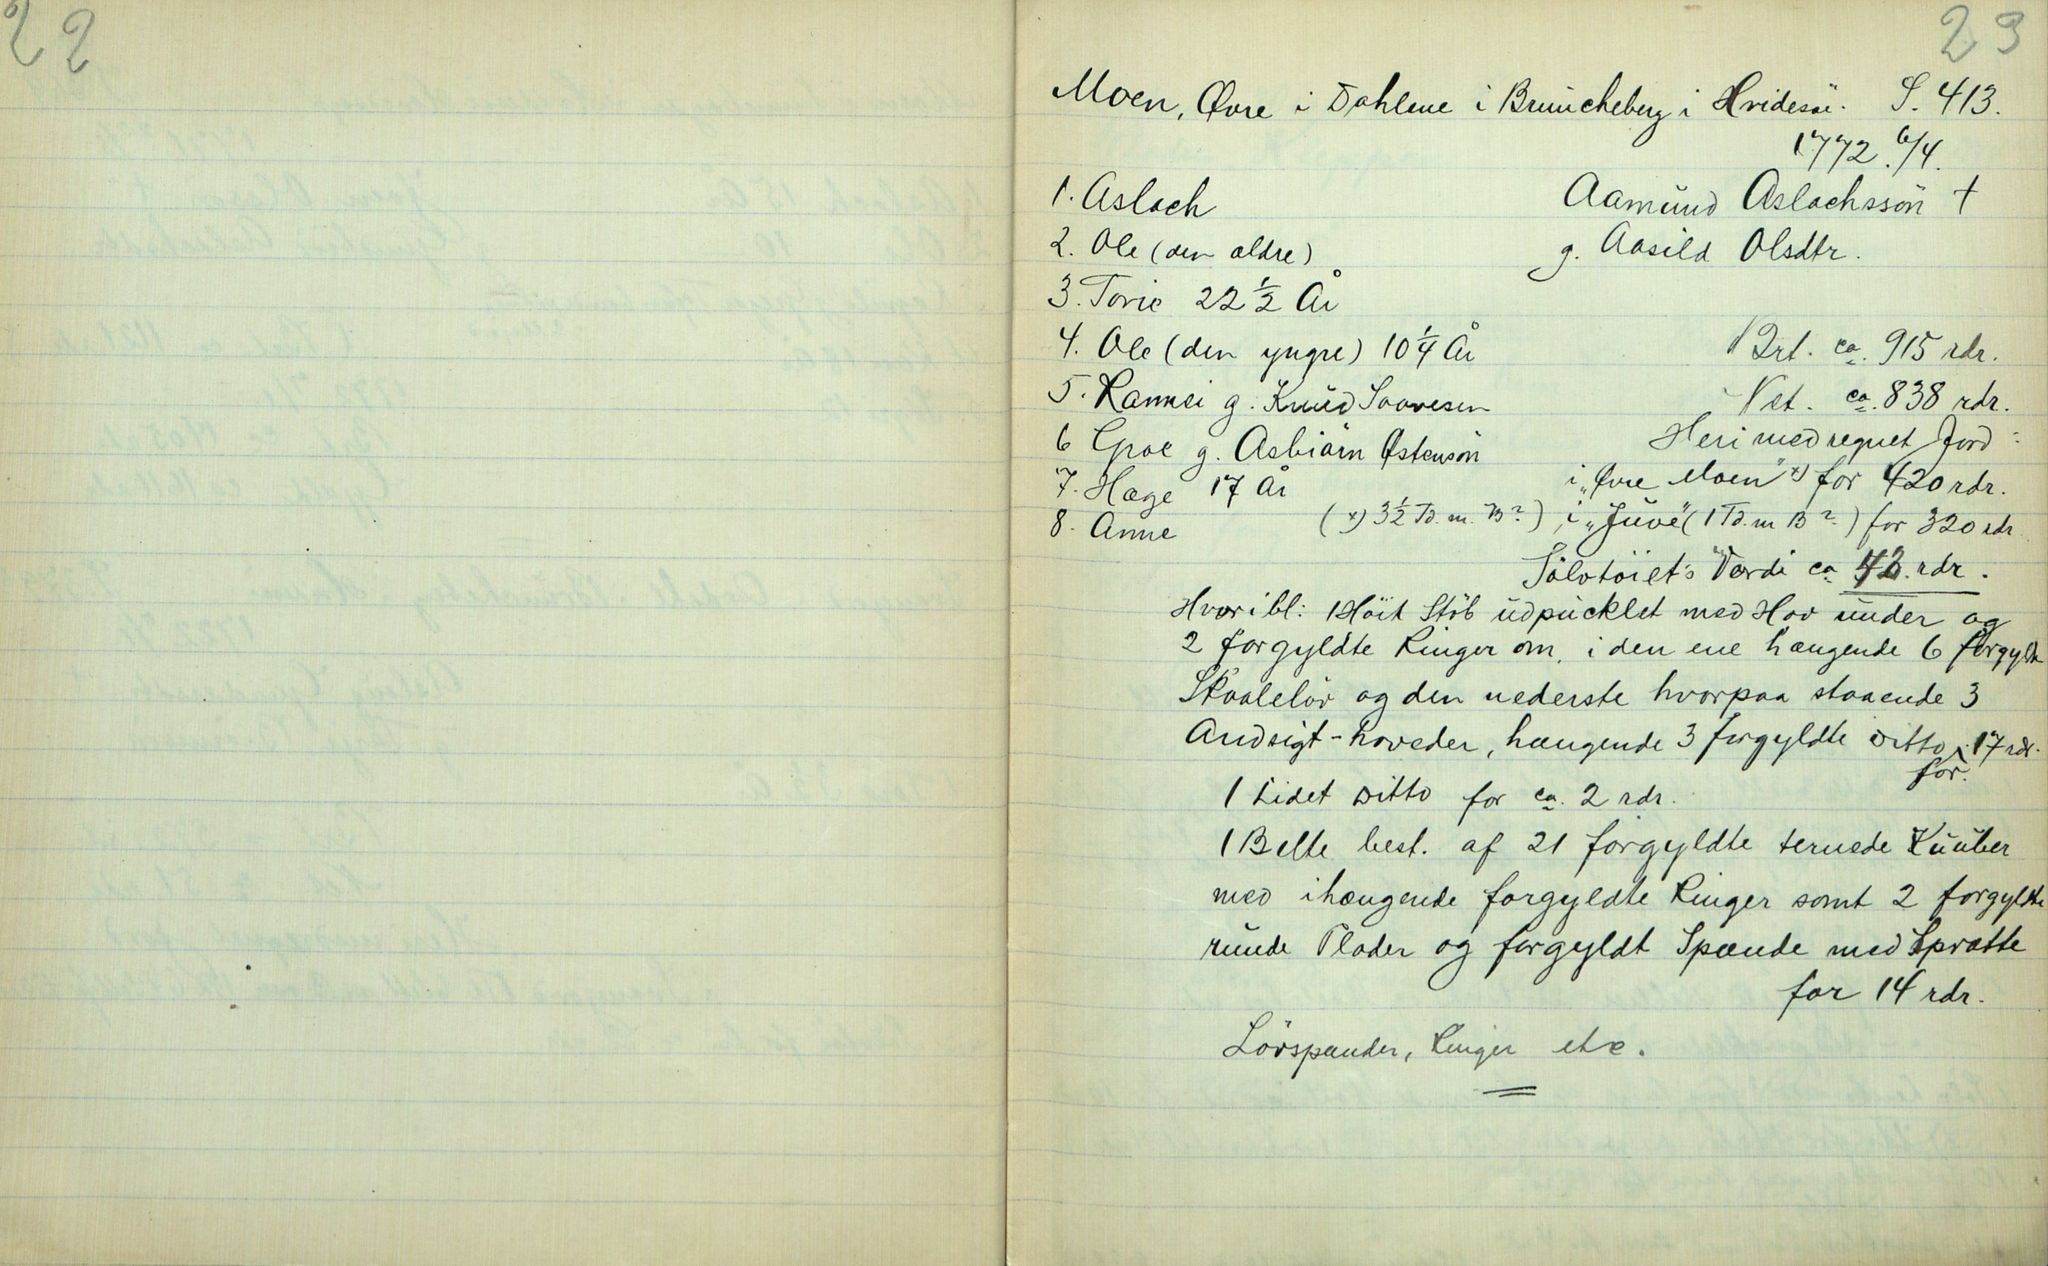 22
23
Moen, Øvre i Dahlene i Bruncheberg i Hvidesøe. S. 413.
1772 6/4.
1. Aslach
Aamund Aslachssön †
2. Ole (den ældre)
g. Aasild Olsdtr.
3. Torie 22 1/2 År
4. Ole (den yngre) 10 1/4 År
Brt. ca. 915 rdr.
5. Rannei g. Knud Saavesen
Net. ca. 838 rdr.
6 Groe g. Asbiörn Østensön
Heri medregnet Jord:
7. Hæge 17 År
i „Øvre Moen" x) for 420 rdr.
8. Anne
(x) 3 1/2 Td. m. B?) i „Juve" (1 Td. m B?) for 320 rdr
Sölvtöiet's Værdi ca 42. rdr.
Hvoribl: 1 Höit Stöb udpucklet med Hov under og
2 forgyldte Ringer om, i den ene hængende 6 forgyldte
Skaaleløv og den nederste hvorpaa staaende 3
Andsigt-hoveder, hængende 3 forgyldte ditto for 17 rdr.
1 Lidet ditto for ca. 2 rdr.
1 Belte best. af 21 forgyldte ternede Knuber
med ihængende forgyldte Ringer samt 2 forgyldte
runde Plader og forgyldt Spænde med Sprotte
for 14 rdr.
Lövspænder, Ringer etc.